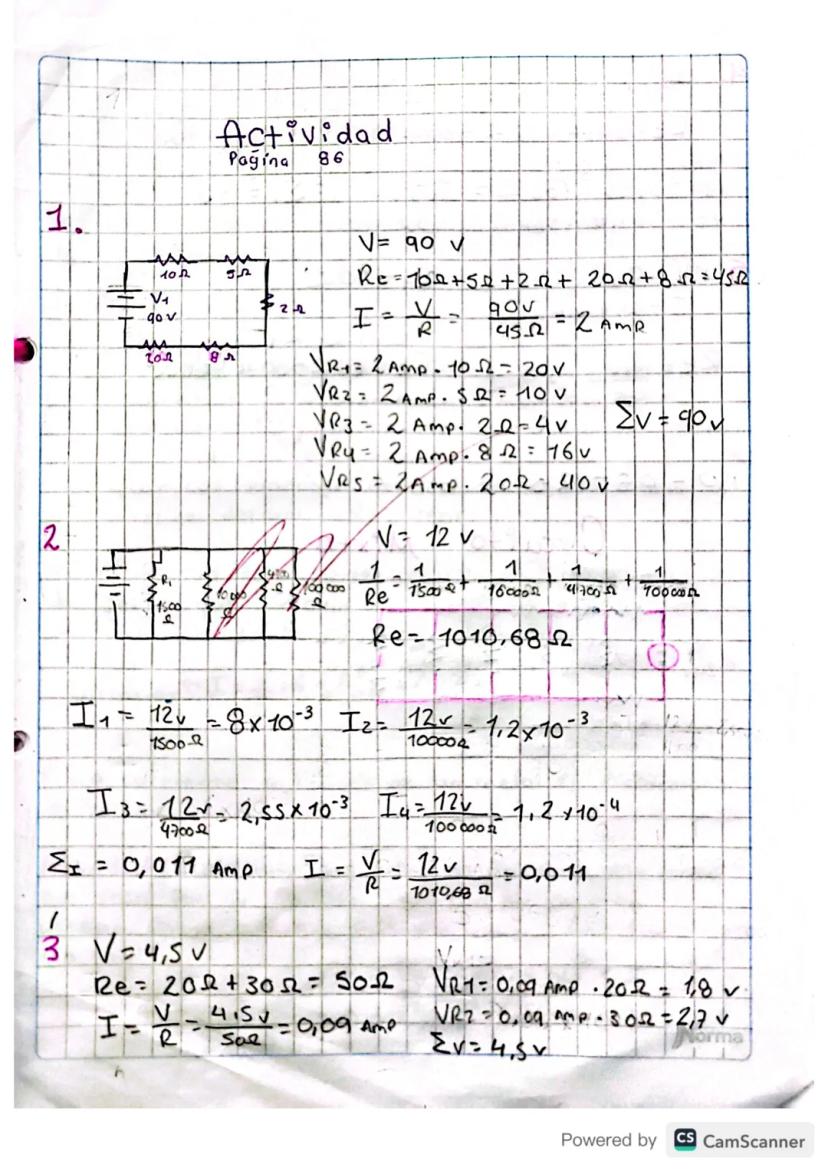 Actividad
Pagina 86
1.
10Ω 5Ω
V1
90V
2Ω
20Ω 8Ω
V= 90 V
Re=10Ω+5Ω+2Ω+ 20Ω+8Ω=45Ω
I = V/R = 90V/45Ω = 2 AMP
VR1= 2 AMP . 10Ω= 20V
VR2= 2 AMP . 5Ω= 10V
VR3= 2 AMP . 2Ω=4V
VR4= 2 AMP . 8Ω= 16V
VR5= 2AMP . 20Ω= 40V
ΣV = 90V
2
R1
1500
Ω
100 000
Ω
V= 12 V
1/Re = 1/1500Ω + 1/10000Ω + 1/4700Ω + 1/100000Ω
Re= 1010,68Ω
I1= 12V/1500Ω =8x10-3 I2= 12V/10000Ω =1,2x10-3
I3= 12V/4700Ω = 2,55x10-3 I4= 12V/100000Ω = 1,2x10-4
ΣI = 0,011 AMP I = V/R = 12V/1010,68Ω =0,011
3 V= 4,5 V
Re= 20Ω+30Ω= 50Ω
I= V/R = 4.5V/50Ω =0,09 AMP
VR1=0,09 AMP .20Ω= 1,8 V
VR2=0,09 AMP .30Ω=2,7 V
ΣV= 4,5V
Norma
Powered by CS CamScanner